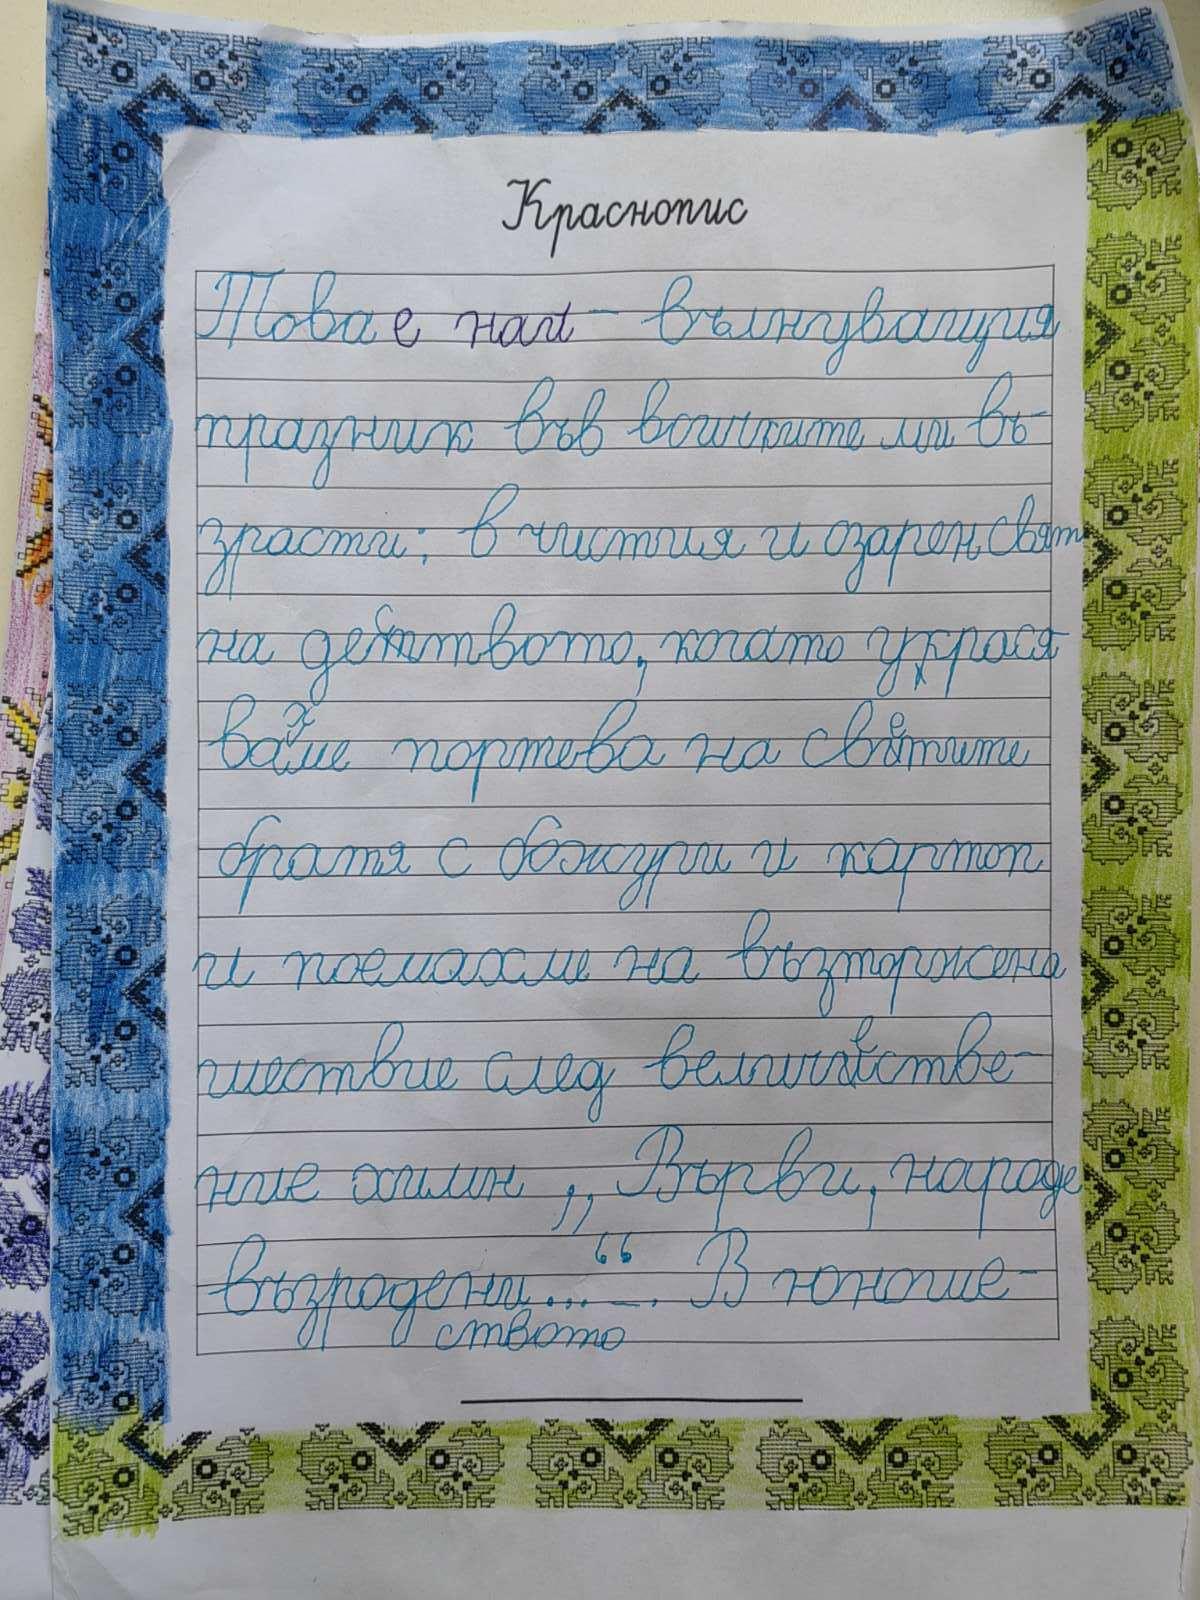 Краснопис
Това е най - вълнуващия
празник във всичките ми въ-
зрасти: в чистия и озарен свят
на детството, когато украся
вахме портева на светите
братя с божури и картоп
и поемахме на възторжена
шествие след величестве-
ние химн „Върви, народе
възродени...“. В юноше-
ството